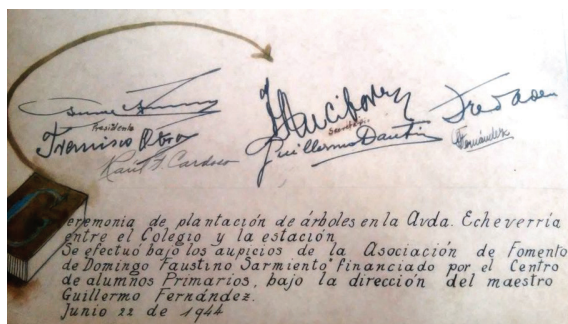 Presidente
Secretario
Francisco
Guillermo Dautin
Fernández
Raúl F. Cardoso
eremonia de plantación de árboles en la Avda. Echeverría
entre el Colegio y la estación
Se efectuó bajo los aupicios de la Asociación de Fomento
de Domingo Faustino Sarmiento financiado por el Centro
de alumnos Primarios, bajo la dirección del maestro
Guillermo Fernández.
Junio 22 de 1944